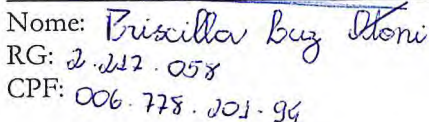 Nome: Priscilla Buz Otoni
RG: 2.217.058
CPF: 006.778.201-94